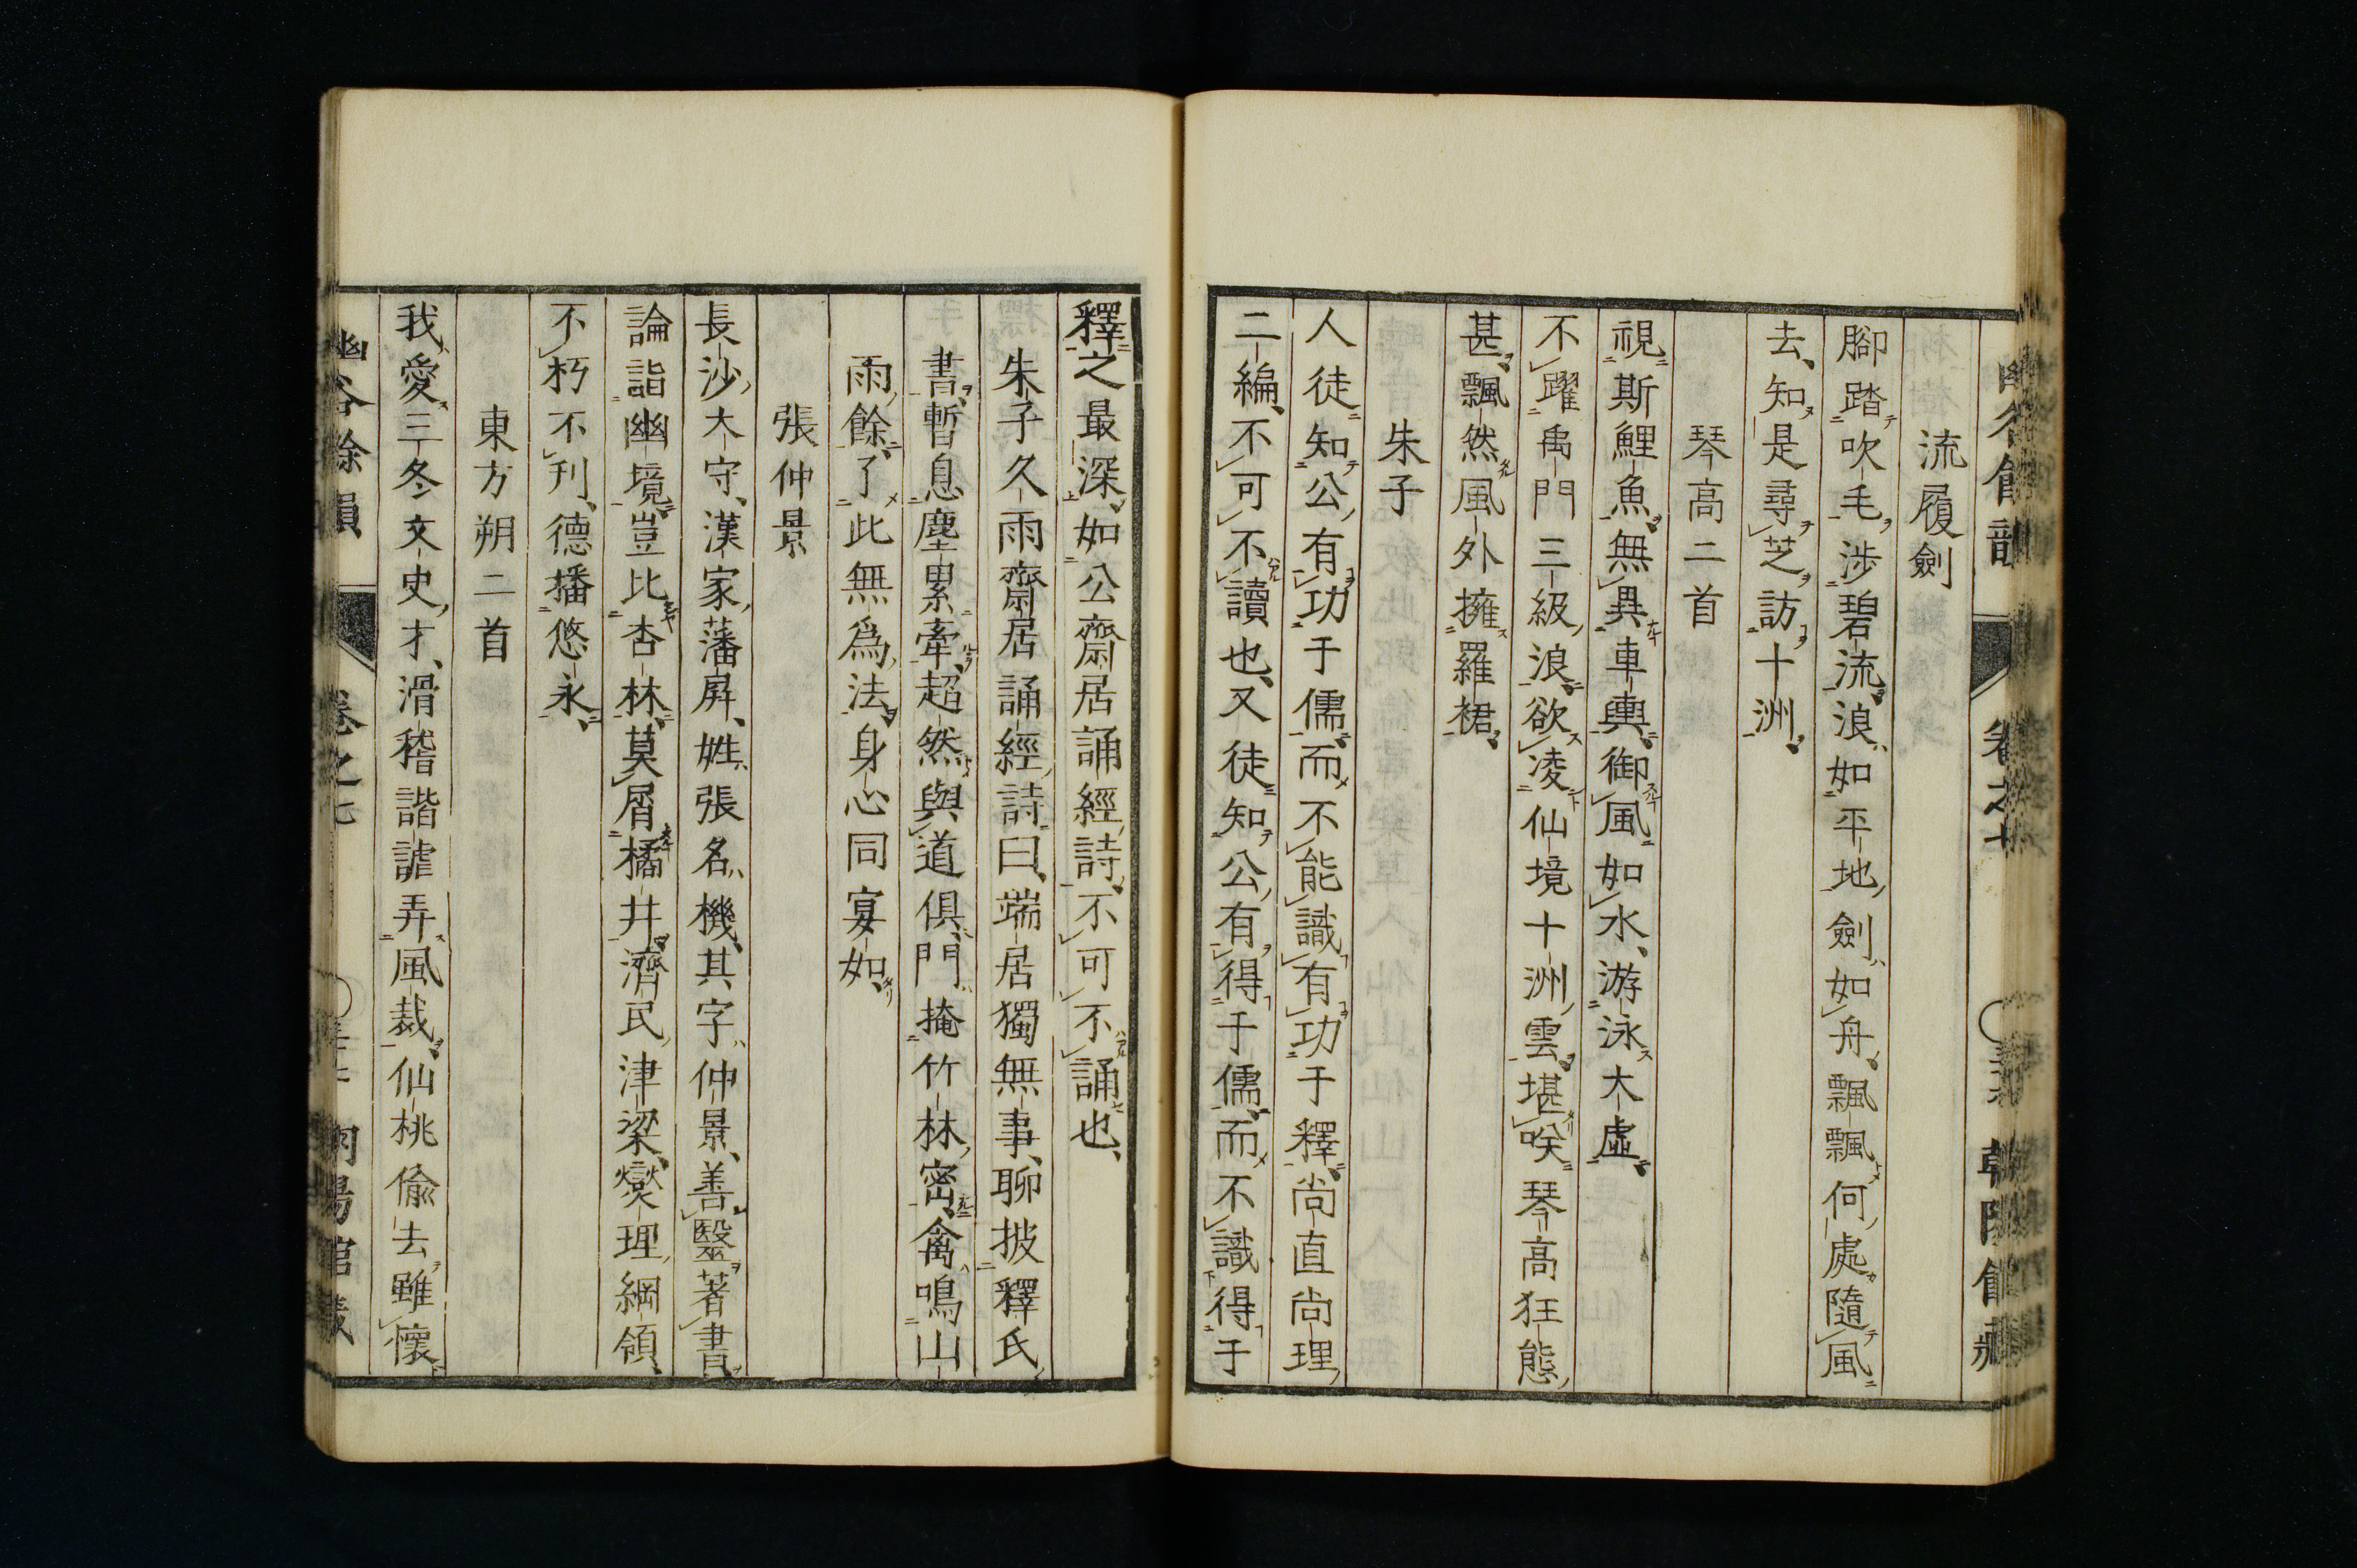 流履劍
腳踏吹毛涉碧流浪如平地劍如舟飄飄何處隨風
去知是尋芝訪十洲
琴高二首
視斯鯉魚無異車輿御風如水游泳大虛
不躍禹門三級浪欲凌仙境十洲雲堪咲琴高狂態
甚飄然風外擁羅裙
朱子
人徒知公有功于儒而不能識有功于釋尚直尚理
二編不可不讀也又徒知公有得于儒而不識得于
釋之最深如公齋居誦經詩不可不誦也
朱子久雨齋居誦經詩曰端居獨無事聊披釋氏
書暫息塵累牽超然與道俱門掩竹林密禽鳴山
雨餘了此無為法身心同宴如
張仲景
長沙大守漢家藩屏姓張名機其字仲景善醫著書
論詣幽境豈比杏林莫屑橘井濟民津梁燮理綱領
不朽不刊德播悠永
東方朔二首
我愛三冬文史才滑稽諧謔弄風裁仙桃偸去雖懷
幽谷餘韻 卷之七 朝陽館藏